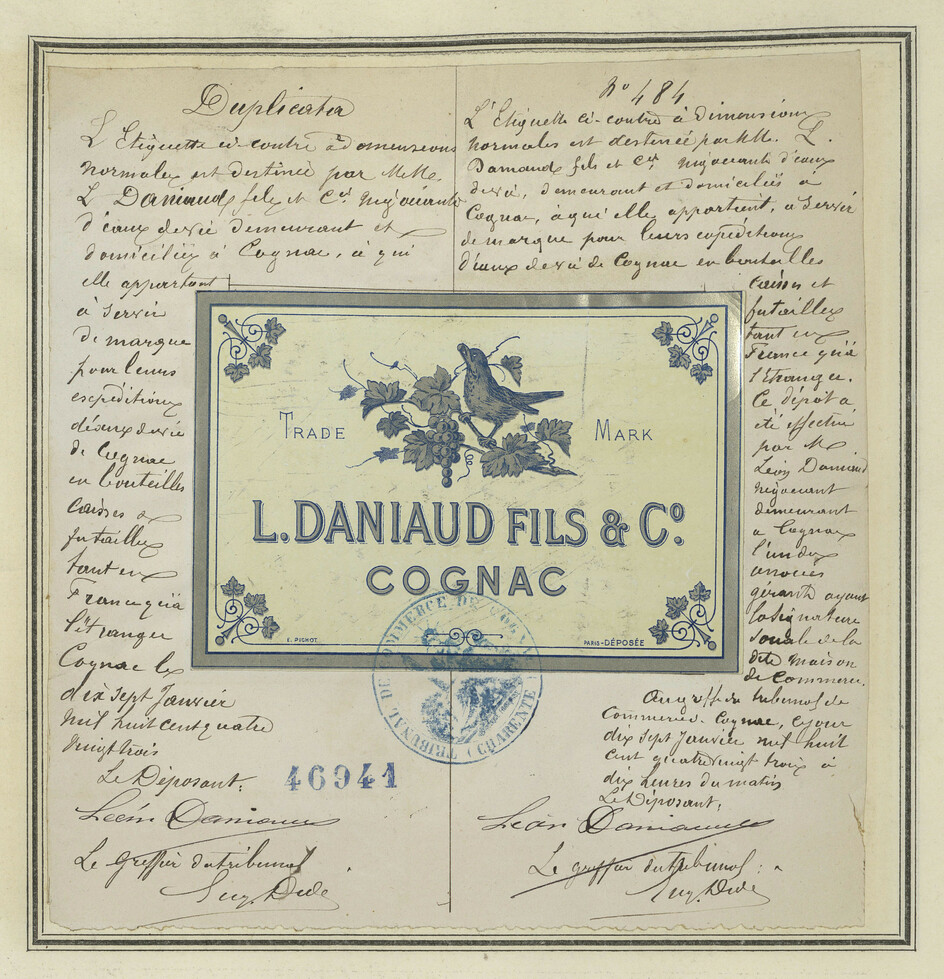 Duplicata
L'Etiquette ci-contre à dimensions
normales est destinée par M.M.
L. Daniaud fils et Cie Négociants
d'eaux de vie demeurant et
domiciliés à Cognac, à qui
elle appartient
à servir
de marque
pour leurs
expéditions
d'eaux de vie
de Cognac
en bouteilles
Caisses et
futailles
tant en
France qu'à
l'étranger
Cognac le
dix sept Janvier
mil huit cent quatre
vingt trois
Le Déposant:
Léon Daniaud
Le Greffier du tribunal
Eug. Dudé
46941
No 484
L'Etiquette ci-contre à dimensions
normales est destinée par MM. L.
Daniaud fils et Cie Négociants d'eaux
de vie, demeurant et domiciliés à
Cognac, à qui elle appartient, à servir
de marque pour leurs expéditions
d'eaux de vie de Cognac en bouteilles
caisses et
futailles
tant en
France qu'à
l'étranger.
Ce dépôt a
été effectué
par M
Léon Daniaud
négociant
demeurant
à Cognac
l'un des
associés
gérants ayant
la signature
sociale de la
dite maison
de Commerce.
Au greffe du tribunal de
Commerce de Cognac, ce jour
dix sept Janvier mil huit
cent quatre vingt trois à
dix heures du matin
Le Déposant:
Léon Daniaud
Le greffier du tribunal:
Eug. Dudé
TRADE MARK
L. DANIAUD FILS & Co.
COGNAC
E. PICHOT.
PARIS-DÉPOSÉE
TRIBUNAL DE COMMERCE DE COGNAC
(CHARENTE)